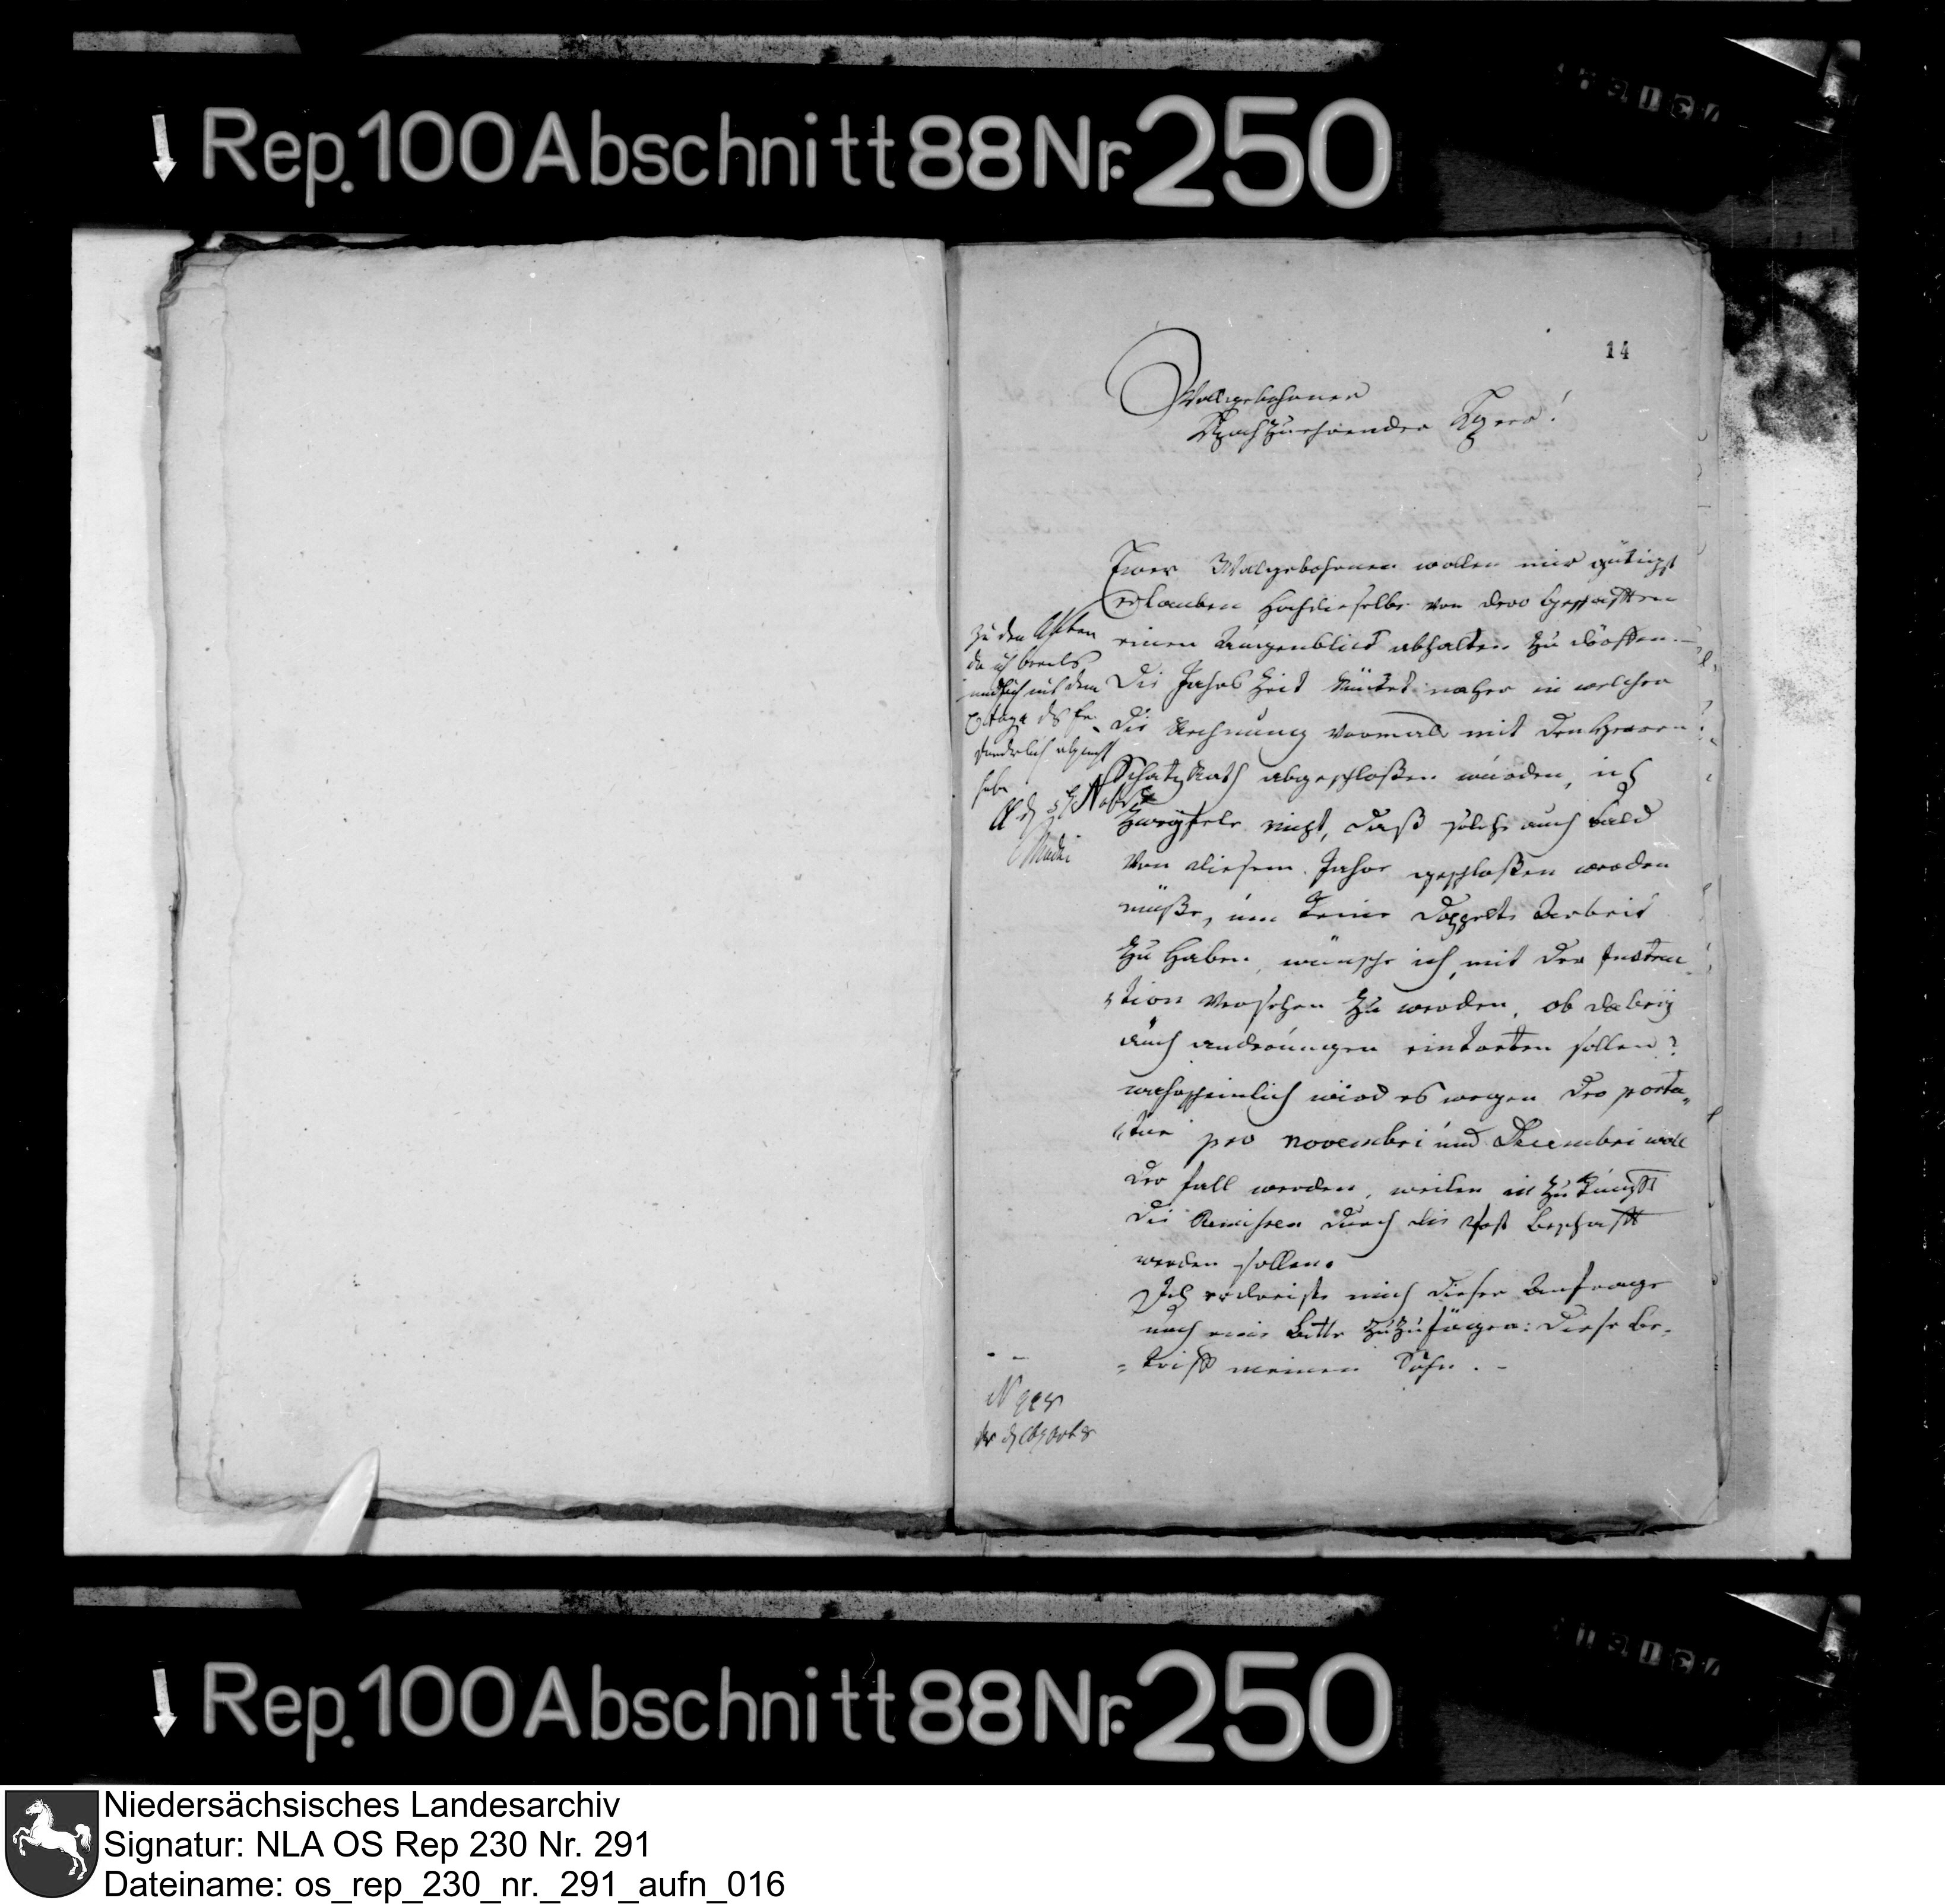 Rep. 100 Abschnitt 88 Nr. 250
14
Wollgebohrner
Hochzuehrender Herr!
Euer Wolgebohrnen wollen mir gütigst
erlauben Hochdieselbe von dero Geschäfften
einen Augenblick abhalten zu dörffen. —
Die Jahrs Zeit rücket naher in welcher
die Rechnung vormals mit den Herren
Schatz Rath abgeschloßen wurden, ich
zweyfele nicht, daß solche auch bald
von diesem Jahre geschloßen werden
müße, um keine doppelte Arbeit
zu haben, wünsche ich, mit der Instru
ction versehen zu werden, ob dabeÿ
auch andrungen eintretten sollen?
wahrscheinlich wird es wegen der porta„
„tur pro novembri und Decembri woll
der fall werden, weilen in Zukunfft
die durch die Post beschafft
werden sollen.
Ich erdreiste mich dieser Anfrage
noch eine Bitte zuzufügen: diese be„
„trifft meinen Sohn. —
zu den Akten
da ich bereits
mündlich mit dem
habe
Rep. 100 Abschnitt 88 Nr. 250
Niedersächsisches Landesarchiv
Signatur: NLA OS Rep 230 Nr. 291
Dateiname: os_rep_230_nr._291_aufn_016